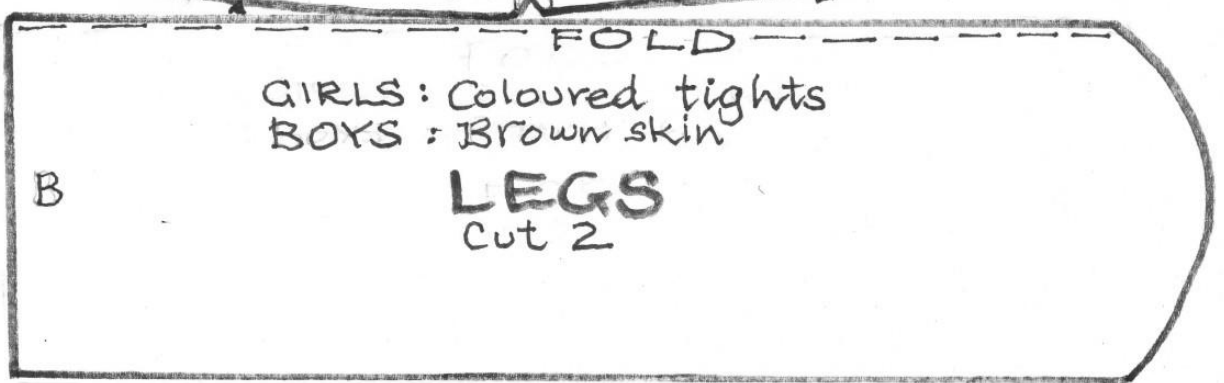 FOLD
GIRLS: Coloured tights
BOYS: Brown skin
B
LEGS
Cut 2